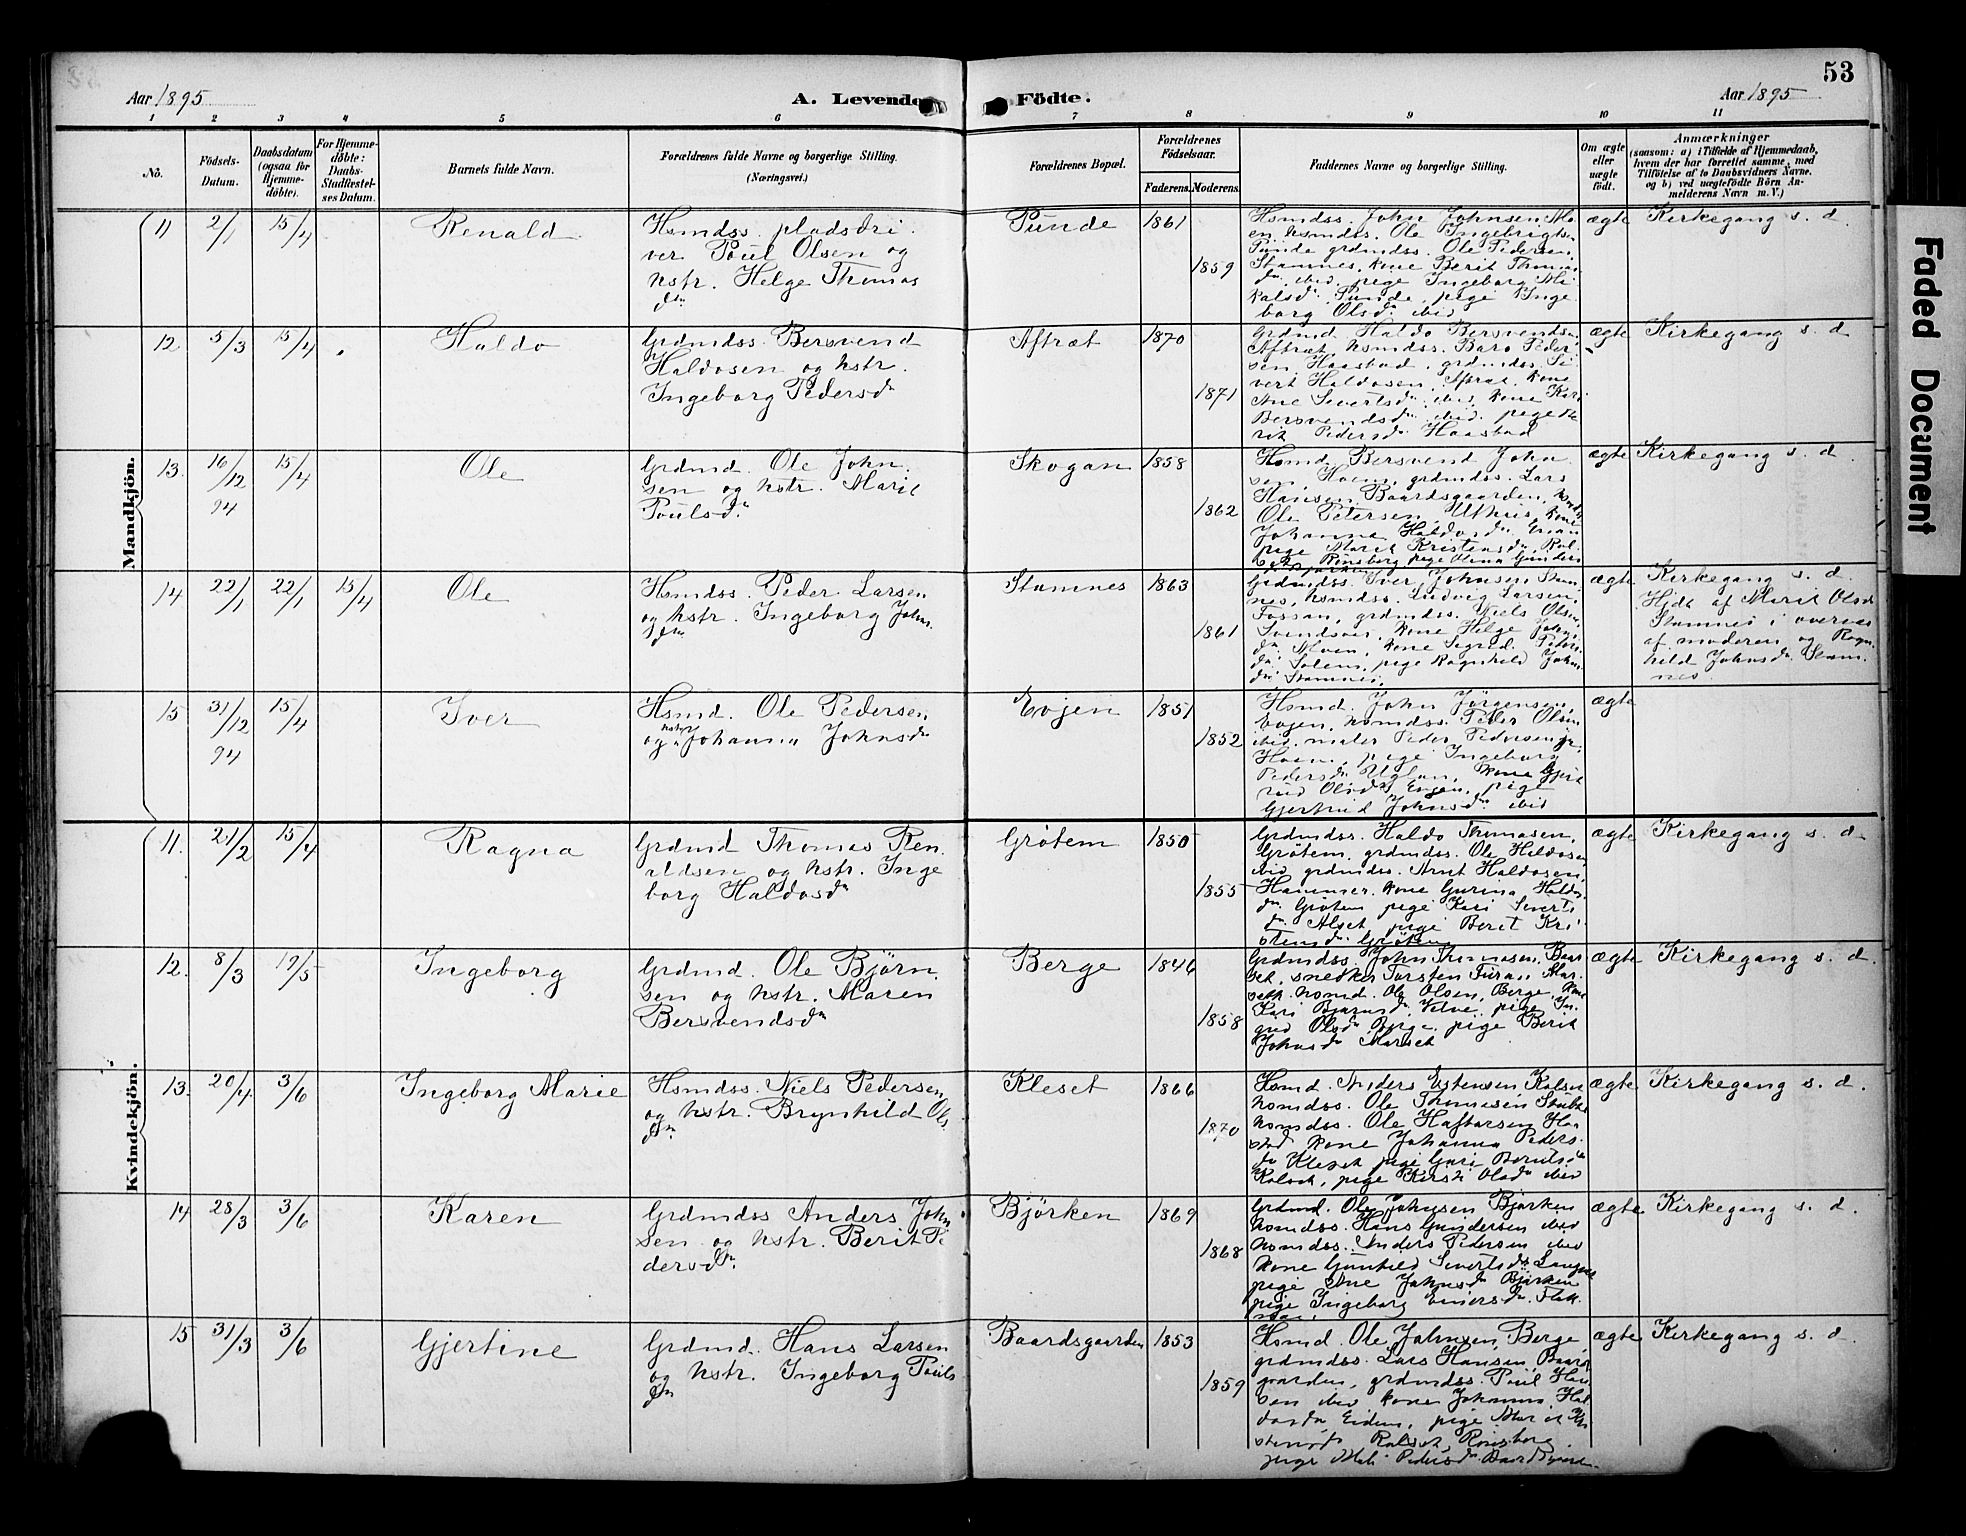 53
Aar 1895
A. Levende Födte.
Aar 1895
1 2 3 4 5 6 7 8 9 10 11
No.
Födsels-Datum.
Daabsdatum (ogsaa for Hjemmedöbte).
For Hjemmedöbte: Daabs-Stadfæstelses Datum.
Barnets fulde Navn.
Forældrenes fulde Navne og borgerlige Stilling.
(Næringsvei.)
Forældrenes Bopæl.
Forældrenes Födselsaar.
Faderens. Moderens.
Faddernes Navne og borgerlige Stilling.
Om ægte eller uægte födt.
Anmærkninger
(saasom: a) i Tilfælde af Hjemmedaab,
hvem der har forrettet samme, med
Tilföielse af to Daabsvidners Navne,
og b) ved uægtefödte Börn An-
melderens Navn m. V.)
Faded Document
Mandkjön.
11 2/1 15/4 Renald
Hsmdss. pladsdri
ver Poul Olsen og
hstr. Helge Thomas
dtr
Punde 1861
1859
Hsmdss. John Johnsen Mo
en hsmdss. Ole Ingebrigts
Punde grdmdss. Ole Pedersen
Stamnes, kone Berit Thomas
dtr ibid, pige Ingeborg Mi
kalsdtr Punde, pige Inge
borg Olsdtr ibid
ægte Kirkegang s. d.
12 5/3 15/4 Haldo
Grdmdss. Bersvend
Haldosen og hstr.
Ingeborg Pedersdtr
Aftræt 1870
1871
Grdmd. Haldo Bersvendsen
Aftræt, hsmdss. Baro Peder
sen Haasbad, grdmdss. Si
vert Haldosen, Aftræt, kone
Ane Sivertsdtr ibid, kone Kari
Bersvendsdtr ibid. pige Be
rit Pedersdtr Haasbad
ægte Kirkegang s. d.
13. 16/12 94 15/4 Ole
Grdmd. Ole John
sen og hstr. Marit
Poulsdtr
Skogan 1858
1862
Hsmd. Bersvend John
sen, Hoem, grdmdss. Lars
Hansen Baardsgaarden,
Ole Petersen Uthus, kone
Johanne Haldosdtr
pige Marit Kristensdtr
Rønsberg pige Olina Gunders
ægte Kirkegang s. d.
14 22/1 22/1 15/4 Ole
Hsmdss. Peder Larsen
og hstr. Ingeborg Johns
dtr
Stamnes 1863
1861
Grdmdss. Iver Johnsen Stam
nes, hsmdss. Ludvig Larsen,
Fossan, grdmdss. Niels Olsen
Svendsøien, kone Helge Johns
dtr Moen, kone Sigrid Peders
dtr Solem, pige Ragnhild Johns
dtr Stamnes.
ægte Kirkegang s. d.
Hjdt af Marit Olsdtr
Stamnes i overvær
af moderen og Ragn
hild Johnsdtr Stam
nes.
15 31/12 94 15/4 Iver
Hsmd. Ole Pedersen
og hstr. Johanna Johnsdtr
Evjen 1851
1852
Hsmd. John Jørgensen,
Evjen, hsmdss. Peder Olsen
ibid. maler Peder Pedersen
Hoem, pige Ingeborg
Pedersdtr Uglan, kone Gjert
rud Olsdtr Evjen, pige
Gjertrud Johnsdtr ibid
ægte
Kvindekjön.
11. 21/2 15/4 Ragna
Grdmd Thomas Ren
aldsen og hstr. Inge
borg Haldosdtr
Grötem 1850
1855
Grdmdss. Haldo Thomasen,
Grötem, grdmdss. Ole Haldosen
ibid grdmdss. Arnt Haldosen,
Hammer, kone Gurina Haldos
dtr Grötem pige Kari Siverts
dtr Alset, pige Berit Kri
stensdtr Grötem
ægte Kirkegang s. d.
12. 8/3 19/5 Ingeborg
Grdmd. Ole Bjørn
sen og hstr. Maren
Bersvendsdtr
Berge 1846
1858
Grdmdss. John Thomasen, Baar
set, snedker Torsten Furan Mar
set, hsmd. Ole Olsen, Berge, kone
Kari Bjørnsdtr Velve, pige In
grid Olsdtr Berge, pige Berit
Johnsdtr Marset
ægte Kirkegang s. d.
13. 20/4 3/6 Ingeborg Marie
Hsmdss. Niels Pedersen
og hstr. Brynhild Ols
dtr
Kleset 1866
1870
Hsmd. Anders Estensen Kalset
hsmdss. Ole Thomasen Stubbe
hsmdss. Ole Haftorsen Haa
stad kone Johanna Peders
dtr Kleset pige Guri Berntsdtr
Kalset, pige Kirsti Olsdtr ibid
ægte Kirkegang s. d.
14 28/3 3/6 Karen
Grdmdss Anders John
sen og hstr. Berit Pe
dersdtr
Bjørken 1869
1868
Grdmd. Ole Johnsen Bjørken
hsmdss. Hans Gundersen ibid
hsmdss. Anders Pedersen ibid
kone Gunhild Sivertsdtr
pige Ane Johnsdtr Bjørken
pige Ingeborg Einersdtr
ægte Kirkegang s. d.
15 31/3 3/6 Gjertine
Grdmd. Hans Larsen
og hstr. Ingeborg Pouls
dtr
Baardsgaarden 1853
1859
Hsmd. Ole Johnsen, Berge,
grdmdss. Lars Hansen Baards
gaarden, grdmdss. Poul Han
sen ibid kone Johanna Hal
dosdtr Eidem, pige Marit Kri
stensdtr Kalset, Rønsberg
pige Mali Pedersdtr
ægte Kirkegang s. d.